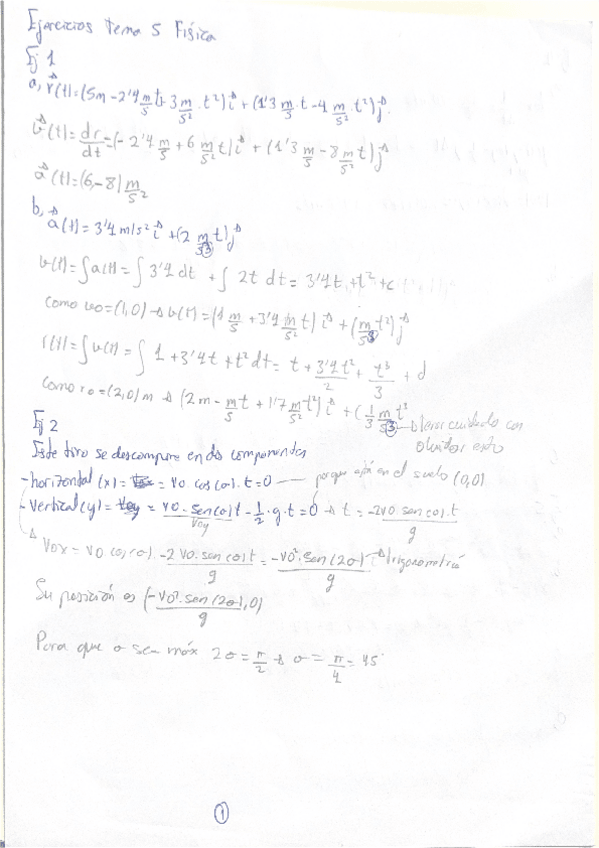 Ejercicios Tema 5 Física
Ej 1
a, r⃗(t)=(5m-2'4 m/s t+3 m/s² · t²)i⃗ + (1'3 m/s · t - 4 m/s² · t²)j⃗
v⃗(t)=dr/dt=(-2'4 m/s + 6 m/s² t)i⃗ + (1'3 m/s - 8 m/s² t)j⃗
a⃗(t)=(6,-8) m/s²
b, a⃗(t)=3'4 m/s² i⃗ +(2 m/s³ t)j⃗
v(t)=∫a(t)=∫3'4 dt + ∫2t dt= 3'4t + t² + c
Como v0=(1,0) → v(t)=(1 m/s + 3'4 m/s² t) i⃗ + (m/s³ t²)j⃗
r(t)=∫v(t)=∫1+3'4t+t² dt= t + 3'4t²/2 + t³/3 + d
Como r0=(2,0)m → (2m- m/s t + 1'7 m/s² t²)i⃗ + (1/3 m/s³ t²
→ Tener cuidado con
olvidar esto
Ej 2
Este tiro se descompone en dos componentes
-horizontal (x) = = v0 · cos(σ) · t=0 — porque está en el suelo (0,0)
-vertical (y) = voy = v0 · sen(σ)t - 1/2 · g · t=0 → t = -2v0 · sen(σ) · t/g
voy
V0x = v0 cos(σ) · -2v0 · sen(σ) t/g = -v0² · sen(2σ)/g → trigonometría
Su posición es (-v0² · sen(2σ)/g, 0)
Para que σ sea máx 2σ = π/2 → σ = π/4 = 45°
1